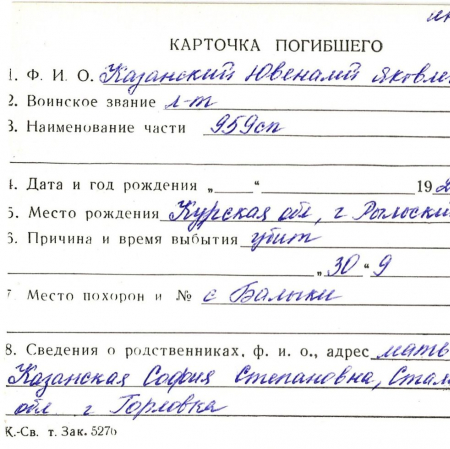 КАРТОЧКА ПОГИБШЕГО
1. Ф. И. О. Казанский Ювеналий Яковле
2. Воинское звание л-т
3. Наименование части 959сп
4. Дата и год рождения „ “ 192
5. Место рождения Курская обл, г Рыльский
6. Причина и время выбытия убит
„30“ 9
7. Место похорон и № с Балыки
8. Сведения о родственниках, ф. и. о., адрес мать
Казанская София Степановна, Стал
обл г Горловка
К.-Св. т. Зак. 527б